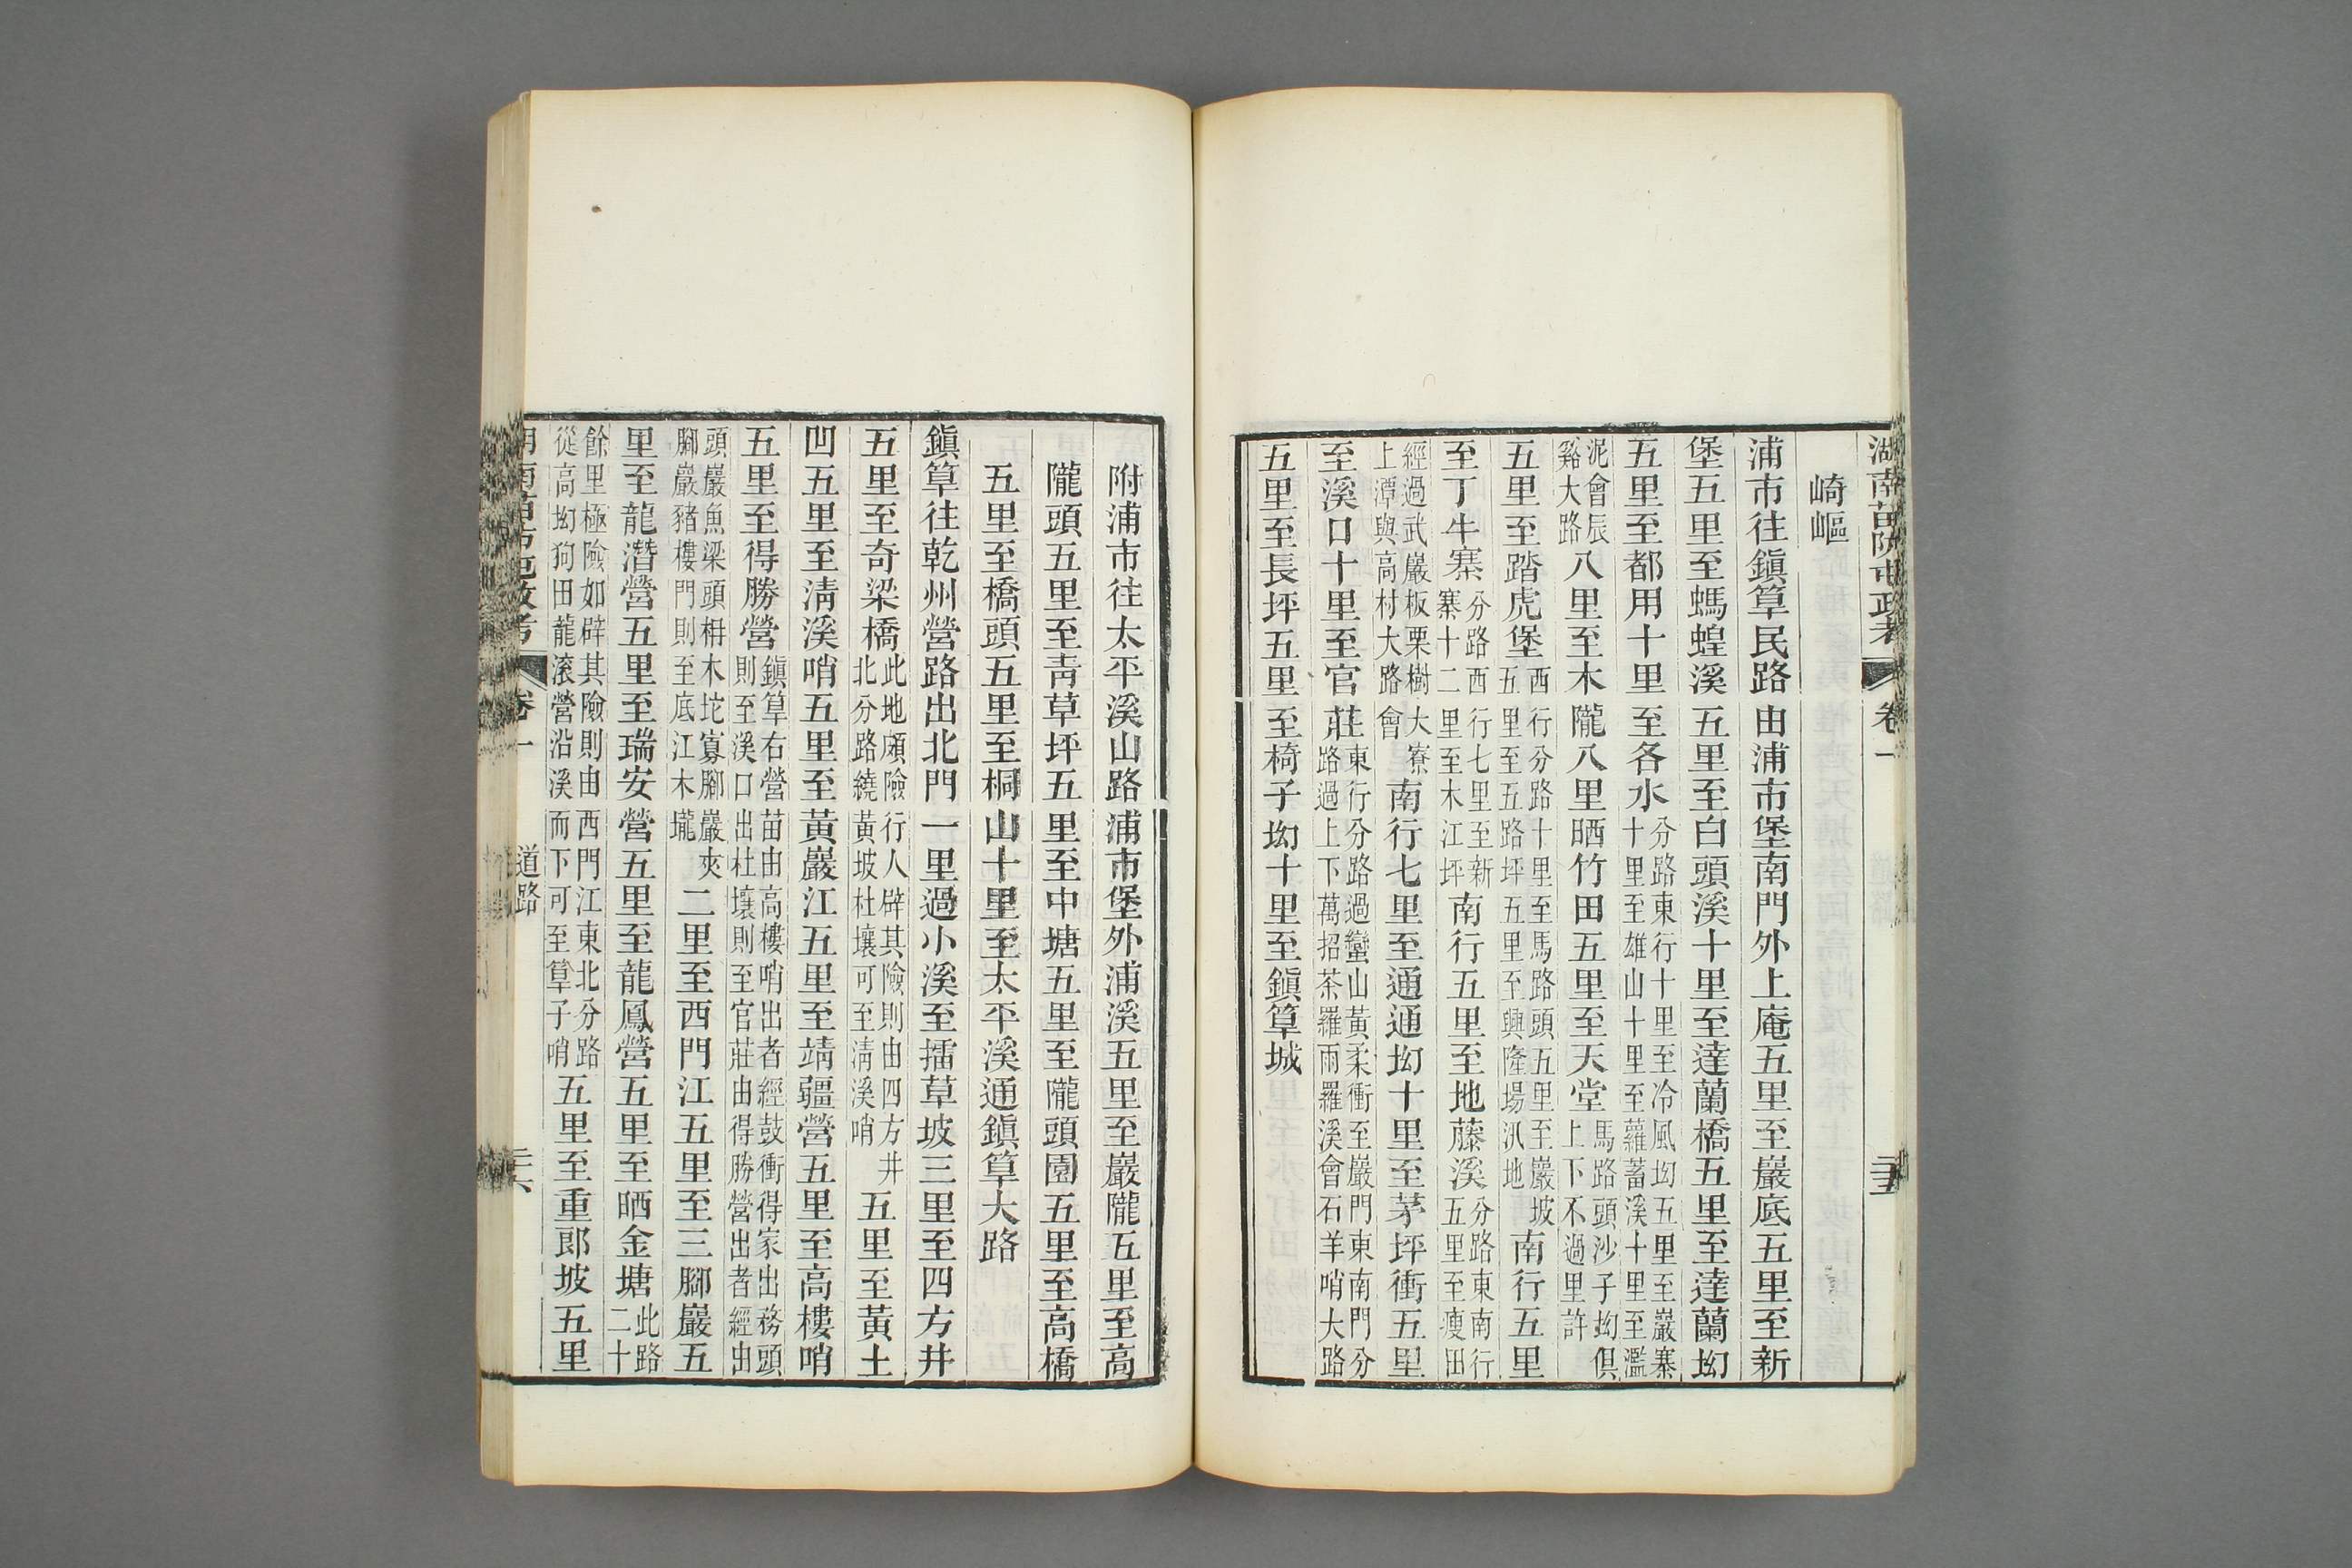 湖南苗防屯政考 卷一 三五
崎嶇
浦市往鎮筸民路由浦市堡南門外上庵五里至巖底五里至新
堡五里至螞蝗溪五里至白頭溪十里至達蘭橋五里至達蘭坳
五里至都用十里至各水分路東行十里至冷風坳五里至巖寨十里至雄山十里至蘿蓄溪十里至濫
泥會辰谿大路八里至木隴八里晒竹田五里至天堂馬路頭沙子坳俱上下不過里許
五里至踏虎堡西行分路十里至馬路頭五里至巖坡五里至五路坪五里至興隆場汛地南行五里
至丁牛寨分路西行七里至新寨十二里至木江坪南行五里至地藤溪分路東南行五里至瘦田
經過武巖板栗樹大寮上潭與高村大路會南行七里至通通坳十里至茅坪衝五里
至溪口十里至官莊東行分路過蠻山黃柔衝至巖門東南門分路過上下萬招茶羅雨羅溪會石羊哨大路
五里至長坪五里至椅子坳十里至鎮筸城
附浦市往太平溪山路浦市堡外浦溪五里至巖隴五里至高
隴頭五里至靑草坪五里至中塘五里至隴頭園五里至高橋
五里至橋頭五里至桐山十里至太平溪通鎮筸大路
鎮筸往乾州營路出北門一里過小溪至擂草坡三里至四方井
五里至奇梁橋此地頗險行人辟其險則由四方井北分路繞黃坡杜壤可至淸溪哨五里至黃土
凹五里至淸溪哨五里至黃巖江五里至靖疆營五里至高樓哨
五里至得勝營鎮筸右營苗由高樓哨出者經鼓衝得家出務頭則至溪口出杜壤則至官莊由得勝營出者經出
頭巖魚梁頭枬木坨寡腳巖夾腳巖豬樓門則至底江木壠二里至西門江五里至三腳巖五
里至龍潛營五里至瑞安營五里至龍鳳營五里至晒金塘此路二十
餘里極險如辟其險則由西門江東北分路從高坳狗田龍滾營沿溪而下可至筸子哨五里至重郎坡五里
卷一 道路